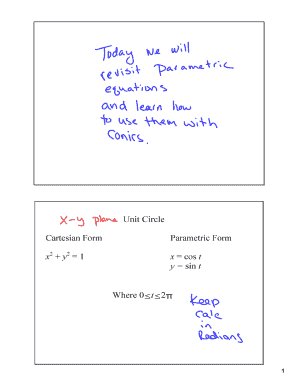 Today we will
revisit parametric
equations
and learn how
to use them with
Conics.
x-y plane Unit Circle
Cartesian Form Parametric Form
x² + y² = 1 x = cos t
y = sin t
Where 0≤t≤2π
Keep
Calc
in
Radians
1